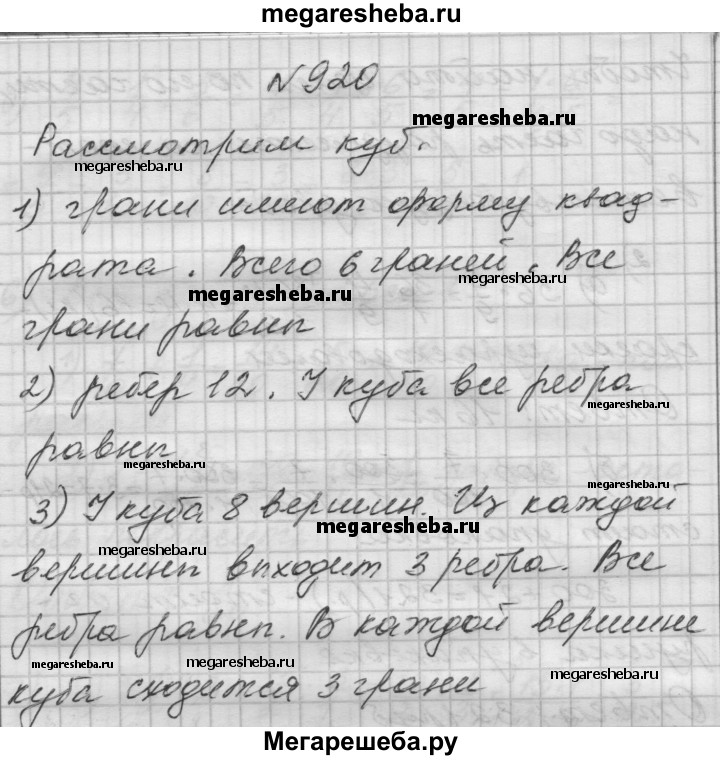 megaresheba.ru
№920
megaresheba.ru
Рассмотрим куб.
megaresheba.ru
1) грани имеют форму квад-
рата. Всего 6 граней. Все
megaresheba.ru
megaresheba.ru
грани равны
2) ребер 12. У куба все ребра
megaresheba.ru
равны
megaresheba.ru
megaresheba.ru
3) У куба 8 вершин. Из каждой
megaresheba.ru
megaresheba.ru
вершины выходит 3 ребра. Все
ребра равны. В каждой вершине
megaresheba.ru
megaresheba.ru
megaresheba.ru
куба сходится 3 грани
Мегарешеба.ру